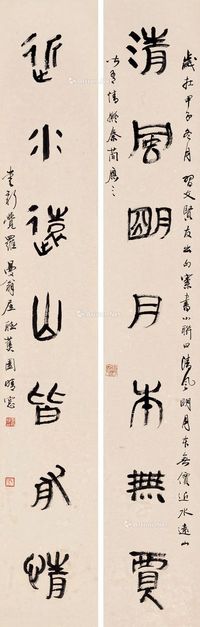 歲在甲子冬月習文賢友出白書小聯曰清風明月本無價近水遠山
清風朙月本無賈
皆有情擬秦簡應之
近水遠山皆有情
覺羅翁